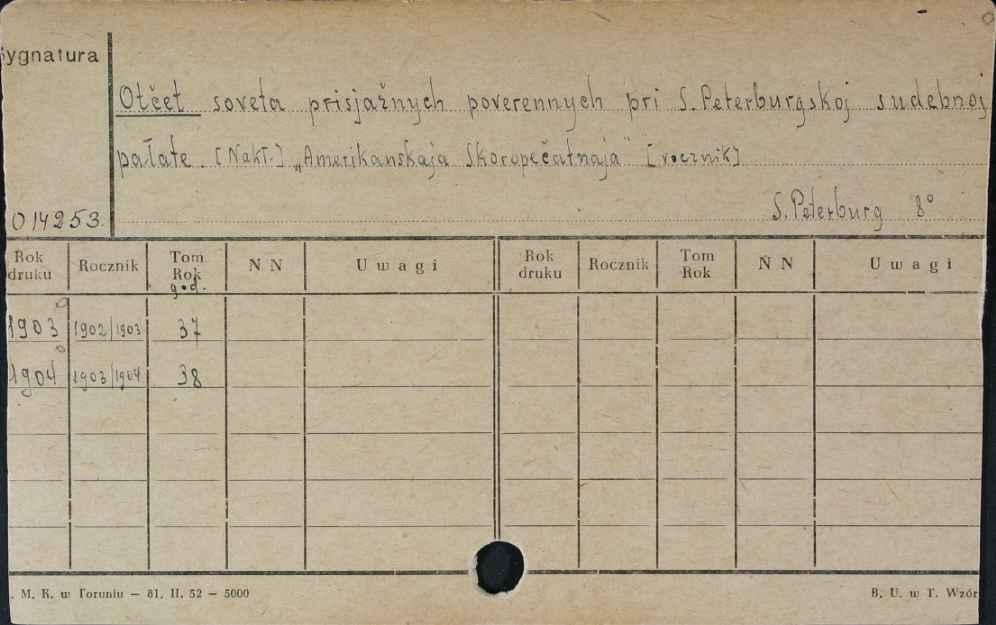 ygnatura
Otčet soveta prisjažnych poverennych pri S. Peterburgskoj sudebnoj
pałate. [Nakł.] „Amerikanskaja Skoropečatnaja" [rocznik]
S. Peterburg 8°
014253
Rok druku Rocznik Tom Rok god. NN Uwagi Rok druku Rocznik Tom Rok NN Uwagi
1903 1902/1903 37
1904 1903/1904 38
. M. K. w Toruniu – 81. II. 52 – 5000 B. U. w T. Wzór